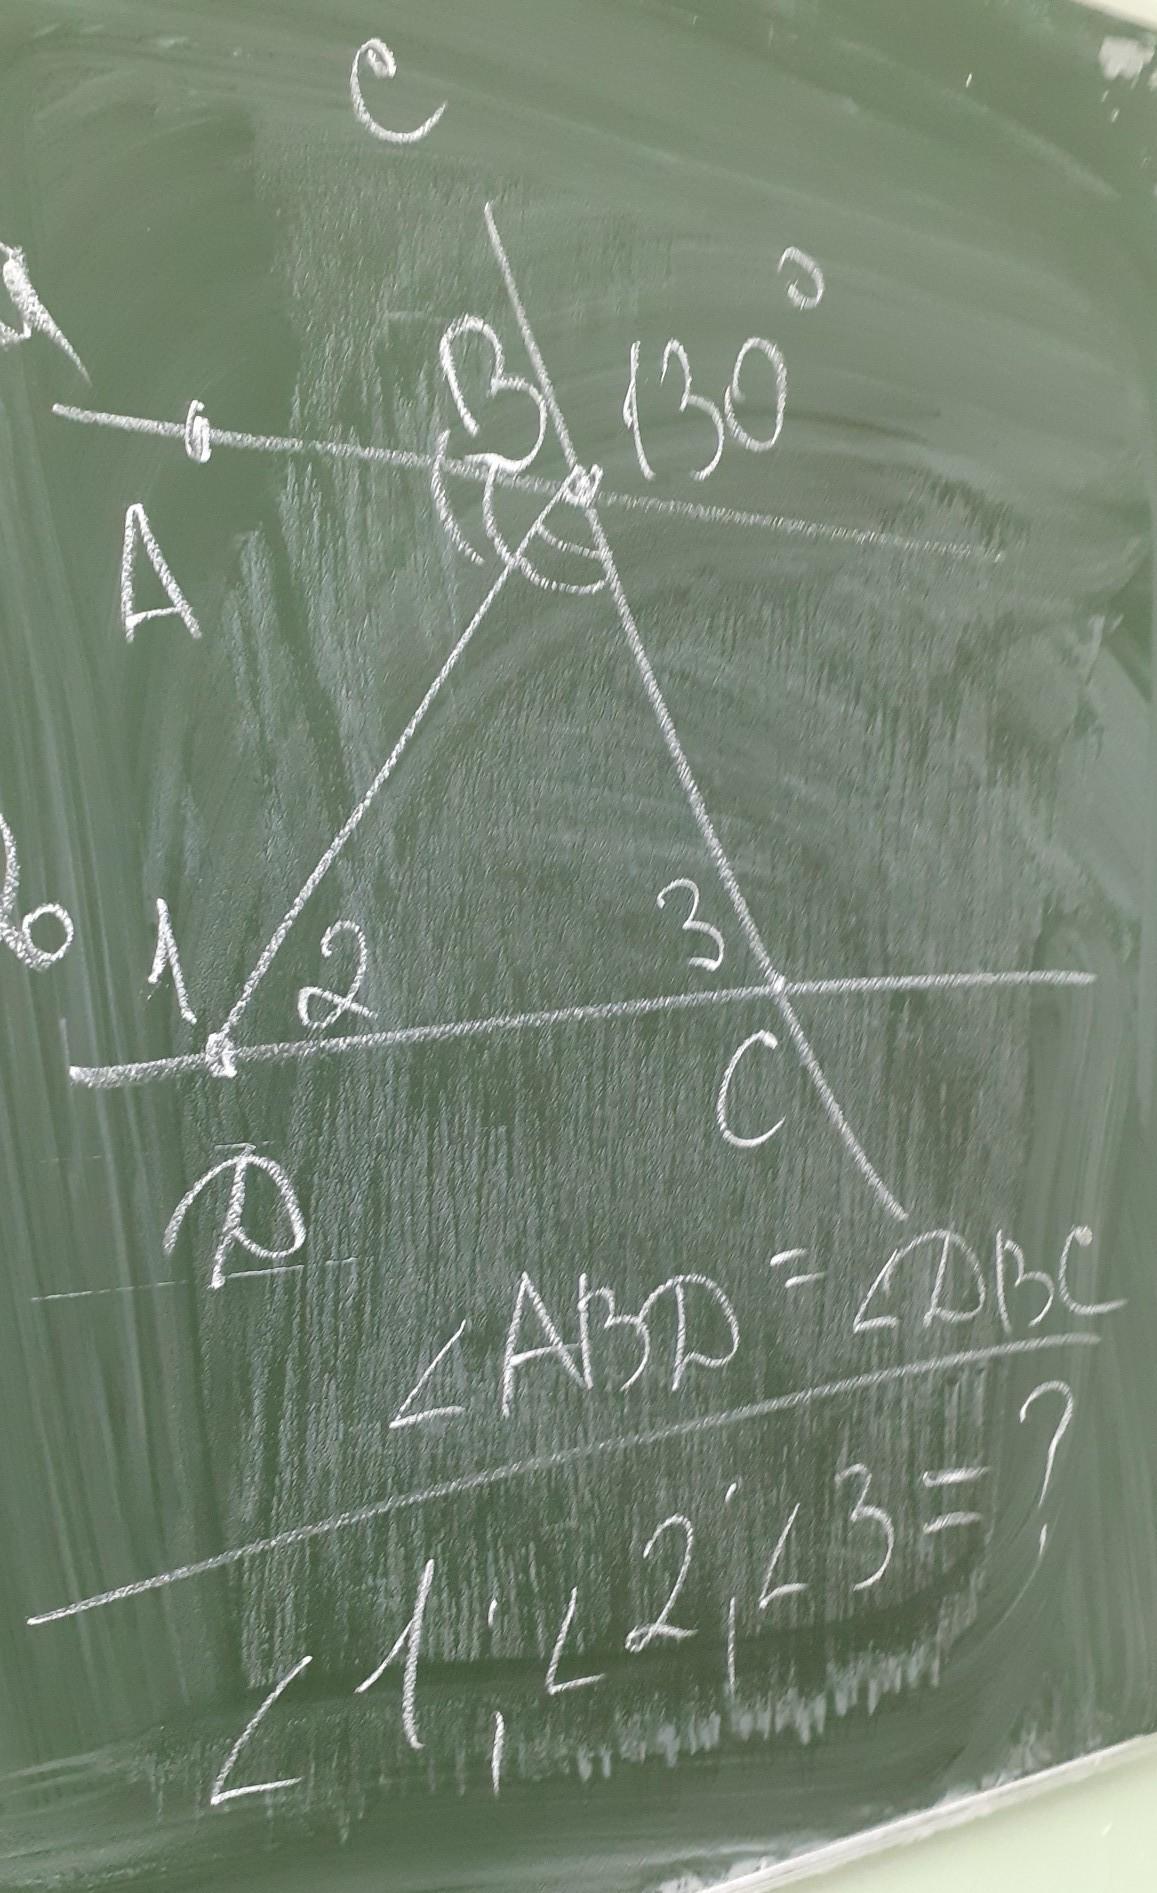 C
B 130°
A
1 2 3
C
D
∠ABD = ∠DBC
∠1; ∠2; ∠3 = ?